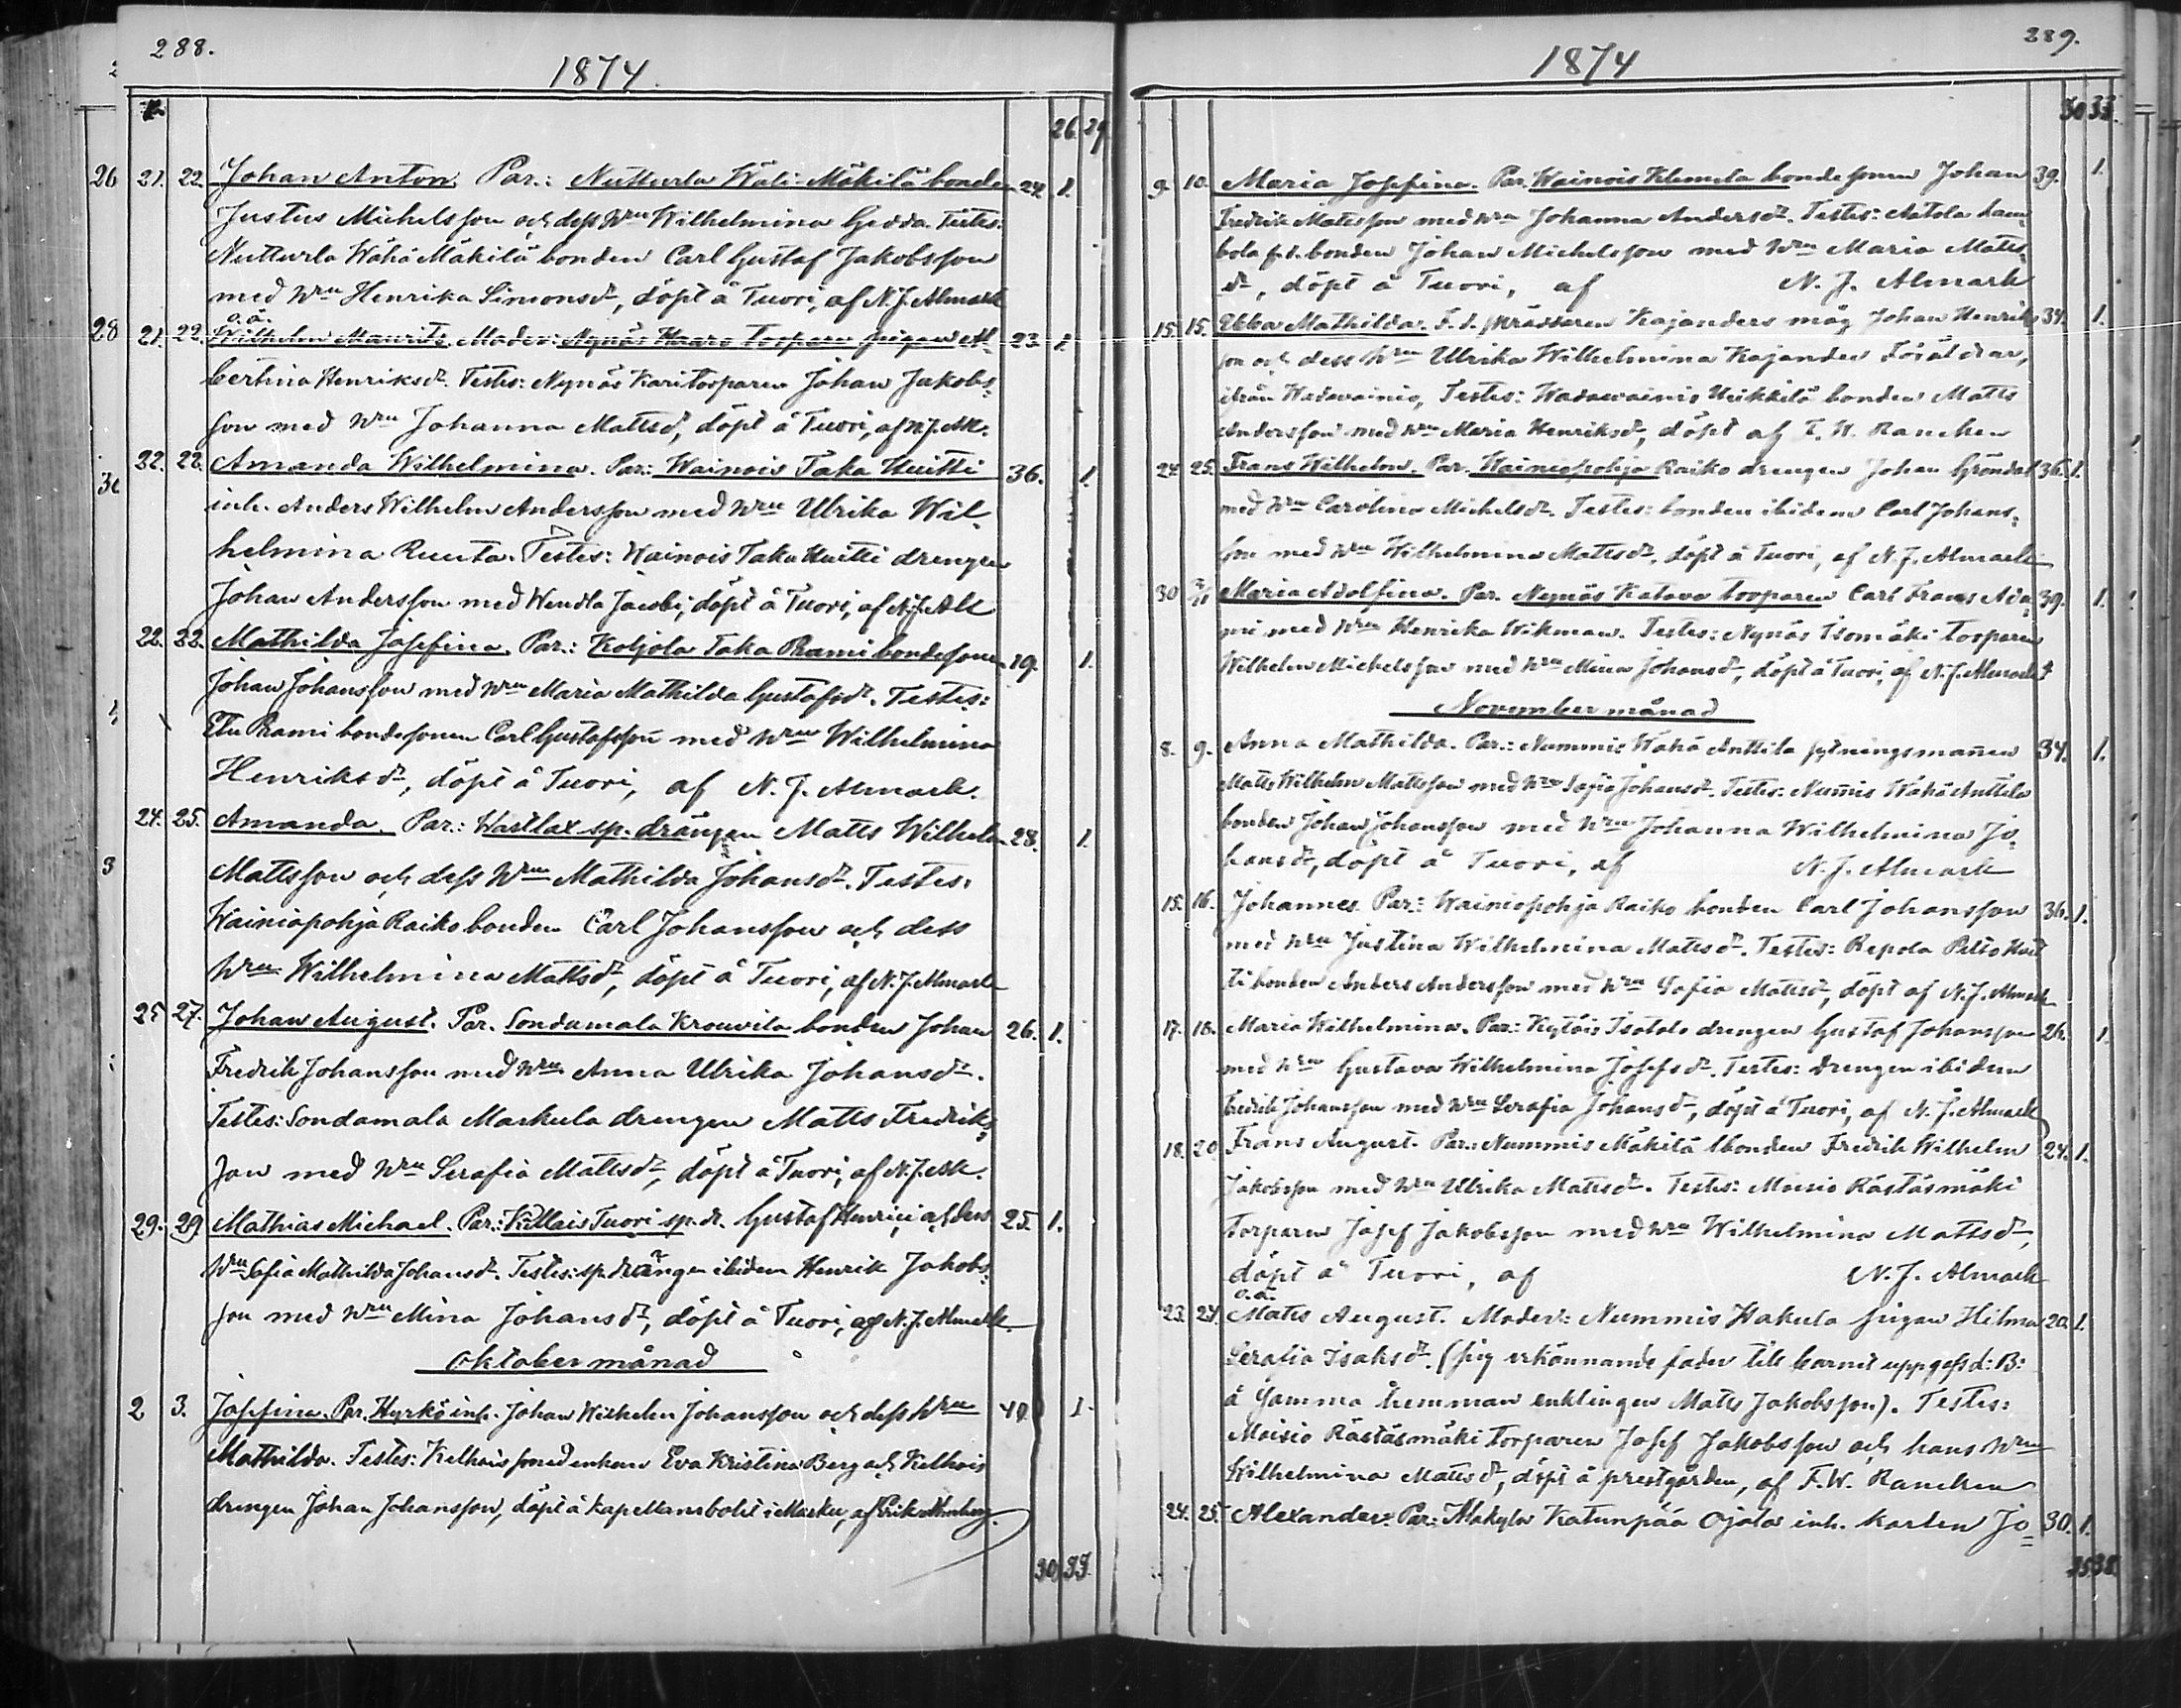 288.
1874.
26. 29
21. 22. Johan Anton. Par.: Nutturla Wäli-Mäkilä bonden 24. 1.
Justus Michelsson och dess Hru Wilhelmina Gedda. Testes:
Nutturla Wähä Mäkilä bonden Carl Gustaf Jakobsson
med Hru Henrika Simonsdr, döpt å Tuori, af N. J. Almark
o.ä.
21. 22. Wilhelm Maurits. Moder: Nynäs Haaro torpare pigan Al- 23. 1.
bertina Henriksdr. Testes: Nynäs Kari torparen Johan Jakobs-
son med Hru Johanna Mattsdr, döpt å Tuori, af N. J. Alk.
22. 22. Amanda Wilhelmina. Par.: Wainois Taka Huitti 36. 1.
inh. Anders Wilhelm Andersson med Hru Ulrika Wil-
helmina Ruuta. Testes: Wainois Taka Huitti drengen
Johan Andersson med Wendla Jacobi, döpt å Tuori, af N. J. Alk
22. 22. Mathilda Josefina. Par.: Koljola Taka Rami bondesonen 19. 1.
Johan Johansson med Hru Maria Mathilda Gustafsdr. Testes:
Etu Rami bondesonen Carl Gustafsson med Hru Wilhelmina
Henriksdr, döpt å Tuori, af N. J. Almark.
24. 25. Amanda Par.: Wartlax sp. drängen Matts Wilhelm 28. 1.
Mattsson och dess Hru Mathilda Johansdr. Testes:
Wainiopohja Raiko bonden Carl Johansson och dess
Hru Wilhelmina Mattsdr, döpt å Tuori, af N. J. Almark
25 27. Johan August. Par. Sondamala Krouvila bonden Johan 26. 1.
Fredrik Johansson med Hru Anna Ulrika Johansdr.
Testes: Sondamala Markula drengen Matts Fredriks-
son med Hru Serafia Mattsdr, döpt å Tuori, af N. J. Alk.
29. 29. Mathias Michael. Par.: Killais Tuori sp. dr. Gustaf Henrici, af dess 25. 1.
Hru Sofia Mathilda Johansdr. Testes: sp. drängen ibidem Henrik Jakobs-
son med Hru Mina Johansdr, döpt å Tuori, af N. J. Almark
Oktober månad
2 3. Josefina. Par. Hyrkö inh. Johan Wilhelm Johansson och dess Hru 40 1.
Mathilda. Testes: Kelhois smedenkan Eva Kristina Berg och Kelhois
drengen Johan Johansson, döpt å kapellansbolet i Masku, af
30. 33.
289.
1874
30 33.
9. 10. Maria Josefina. Par. Wainois Klemola bondesonen Johan 39. 1.
Fredrik Mattsson med Hru Johanna Andersdr. Testes:
bola f.d. bonden Johan Michelsson med Hru Maria Matts-
dr, döpt å Tuori, af N. J. Almark
15. 15. Ebba Mathilda. F. d. Kajanders måg Johan Henriks 34. 1.
son och dess Hru Ulrika Wilhelmina Kajander Föräldrar,
ifrån Wadavainio, Testes: Wadavainio Heikkilä bonden Matts
Andersson med Hru Maria Henriksdr, döpt af F. W. Rancken
24. 25. Frans Wilhelm. Par. Wainiopohja Raiko drengen Johan Gröndal 36. 1.
med Hru Carolina Michelsdr. Testes: bonden ibidem Carl Johans-
son med Hru Wilhelmina Mattsdr, döpt å Tuori, af N. J. Almark
30 Maria Adolfina. Par. Nynäs Katava torparen Carl Frans Ada- 39. 1.
mi med Hru Henrika Wikman. Testes: Nynäs Isomäki torparen
Wilhelm Michelsson med Hru Mina Johansdr, döpt å Tuori, af N. J. Almark
November månad
8. 9. Anna Mathilda. Par.: Nummis Wähä Anttila sytningsmannen 34. 1.
Matts Wilhelm Mattsson med Hru Sofia Johansdr. Testes: Nummis Wähä Anttila
bonden Johan Johansson med Hru Johanna Wilhelmina Jo-
hansdr, döpt å Tuori, af N. J. Almark
15. 16. Johannes. Par.: Wainiopohja Raiko bonden Carl Johansson 36. 1.
med Hru Justina Wilhelmina Mattsdr. Testes: Repola Pelto Huit
ti bonden Anders Andersson med Hru Sofia Mattsdr, döpt af N. J. Almark
17. 18. Maria Wilhelmina. Par: Kylöis Isotalo drengen Gustaf Johansson 26. 1.
med Hru Gustava Wilhelmina Josefsdr. Testes: Drengen ibidem
Fredrik Johansson med Hru Serafia Johansdr, döpt å Tuori, af N. J. Almark
18. 20 Frans August. Par.: Nummis Mäkilä bonden Fredrik Wilhelm 24. 1.
Jakobsson med Hru Ulrika Mattsdr. Testes: Moisio Rästäsmäki
torparen Josef Jakobsson med Hru Wilhelmina Mattsdr,
döpt å Tuori, af N. J. Almark
o.ä.
23. 24. Matts August. Moder: Nummis Hakula pigan Hilma 20. 1.
Serafia Isaksdr. (Sig erkännande fader till barnet uppgafs d: B:
å samma hemman enklingen Matts Jakobsson). Testes:
Moisio Rästäsmäki torparen Josef Jakobsson och hans Hru
Wilhelmina Mattsdr, döpt å prestgården, af F. W. Rancken
24. 25. Alexander. Par: Makyla Katunpää Ojala inh. karlen Jo- 30. 1.
35 38